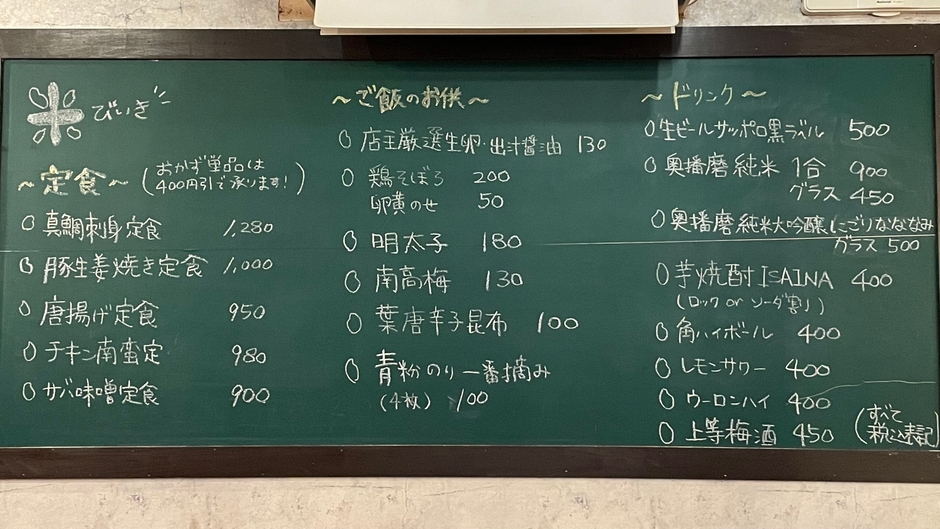 米びいき
~定食~ (おかず単品は
400円引で承ります!)
○真鯛刺身定食 1,280
○豚生姜焼き定食 1,000
○唐揚げ定食 950
○チキン南蛮定 980
○サバ味噌定食 900
~ご飯のお供~
○店主厳選生卵・出汁醤油 130
○鶏そぼろ 200
卵黄のせ 50
○明太子 180
○南高梅 130
○葉唐辛子昆布 100
○青粉のり一番摘み
(4枚) 100
~ドリンク~
○生ビールサッポロ黒ラベル 500
○奥播磨純米 1合 900
グラス 450
○奥播磨純米大吟醸にごりなななみ
グラス 500
○芋焼酎ISAINA 400
(ロック or ソーダ割り)
○角ハイボール 400
○レモンサワー 400
○ウーロンハイ 400
○上等梅酒 450
(すべて
税込表記)